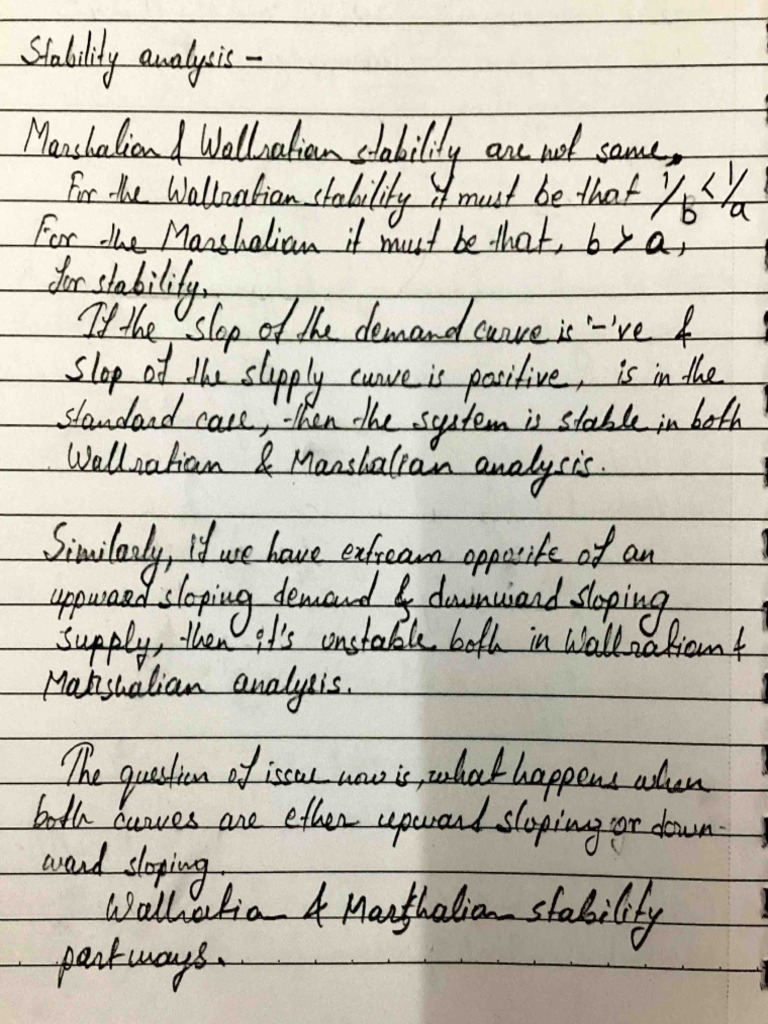 Stability analysis –
Marshalian & Wallratian stability are not same.
For the Wallratian stability it must be that 1/b < 1/a
For the Marshalian it must be that, b > a,
for stability,
If the slop of the demand curve is '-'ve &
slop of the slipply curve is positive, is in the
standard case, then the system is stable in both
Wallratian & Marshalian analysis.
Similarly, if we have extream opposite of an
uppward sloping demand & downward sloping
supply, then it's unstable both in Wallratiam &
Marshalian analysis.
The question of issue now is, what happens when
both curves are ether upward sloping or down-
ward sloping.
Wallratia & Marshalian stability
part ways.